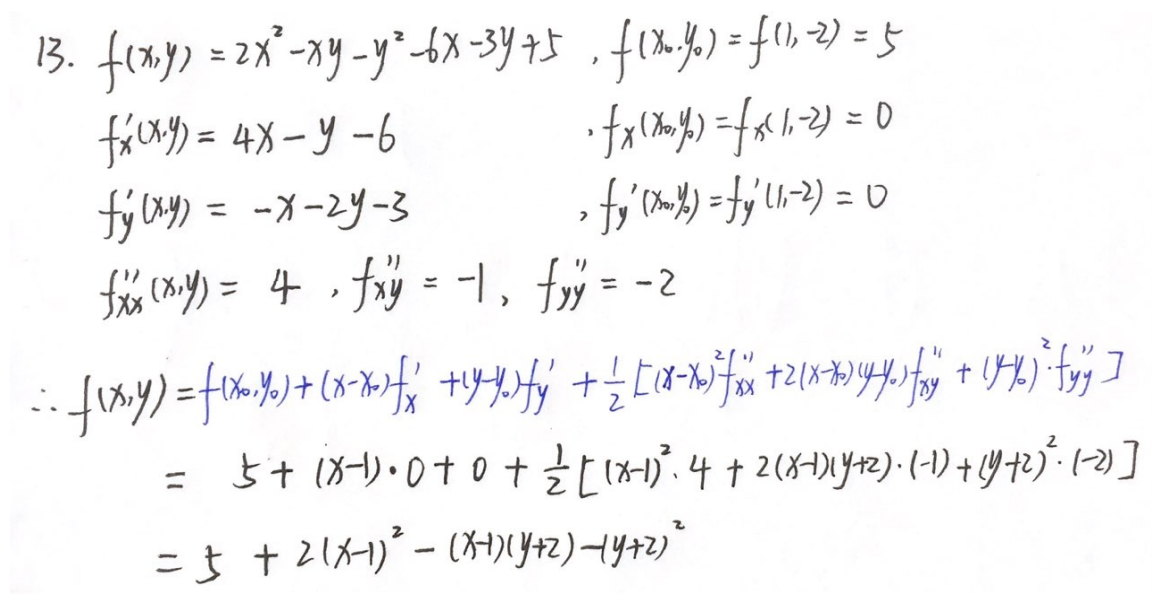 13. f(x,y) = 2x² - xy - y² - 6x - 3y + 5 , f(x₀,y₀) = f(1,-2) = 5
fₓ'(x,y) = 4x - y - 6 , fₓ(x₀,y₀) = fₓ(1,-2) = 0
f_y'(x,y) = -x - 2y - 3 , f_y'(x₀,y₀) = f_y'(1,-2) = 0
f_xx''(x,y) = 4 , f_xy'' = -1 , f_yy'' = -2
∴ f(x,y) = f(x₀,y₀) + (x-x₀)f_x' + (y-y₀)f_y' + 1/2 [(x-x₀)²f_xx'' + 2(x-x₀)(y-y₀)f_xy'' + (y-y₀)²·f_yy'']
= 5 + (x-1)·0 + 0 + 1/2 [(x-1)²·4 + 2(x-1)(y+2)·(-1) + (y+2)²·(-2)]
= 5 + 2(x-1)² - (x-1)(y+2) - (y+2)²